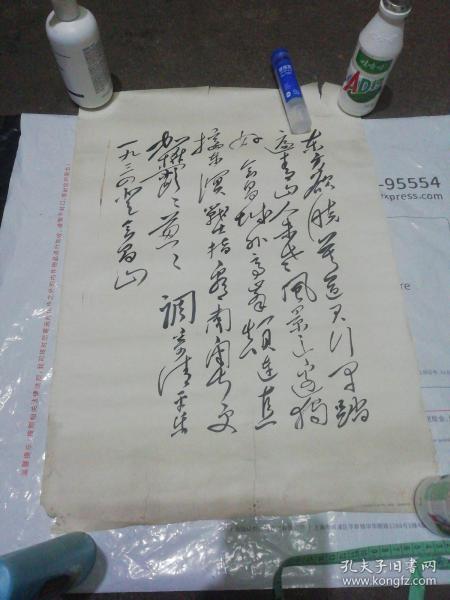 东方欲晓莫道君行早踏
遍青山人未老风景这边独
好会昌城外高峰颠连直
接东溟战士指看南粤更
加鬱〻葱〻 调寄清平乐
一九三四登会昌山
-95554
xpress.com
AD
孔夫子旧书网
www.kongfz.com